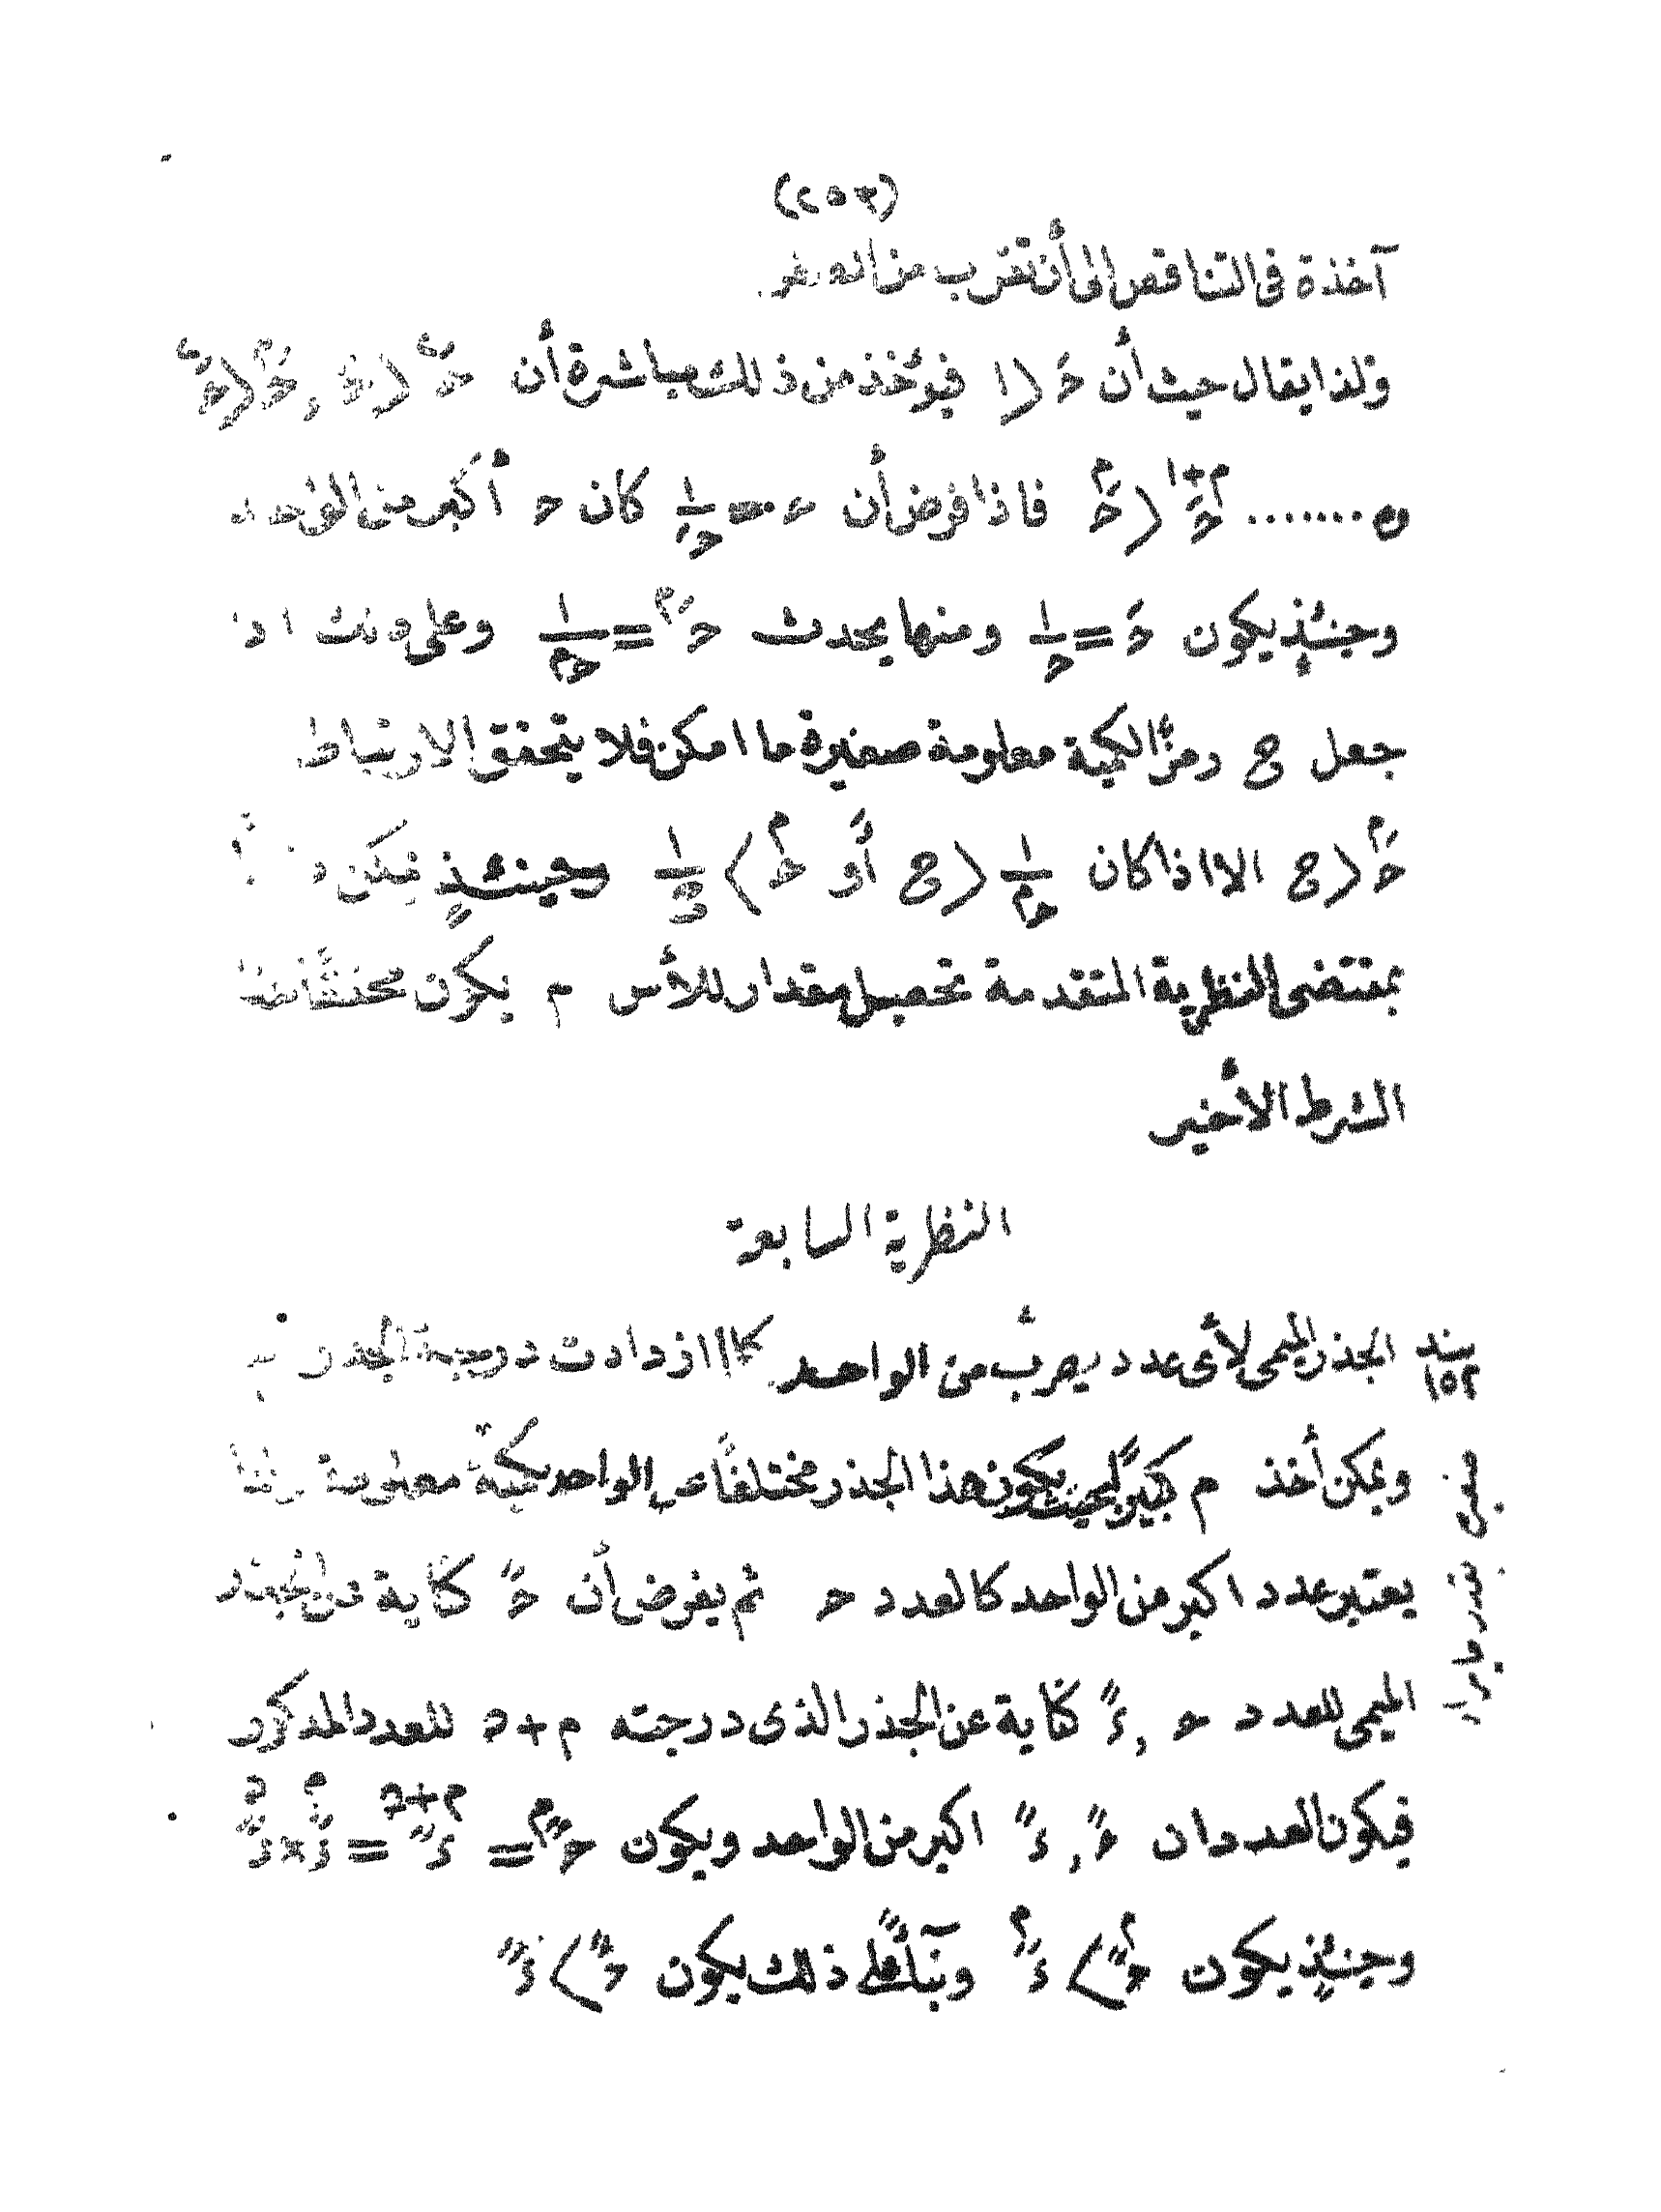 (٢٥٣)
آخذة فى التناقص الى أن تقرب من الصفر
ولذا يقال حيث أن حَ ⟨ ١ فيؤخذ من ذلك مباشرة أن حَ٢ ⟨ حَ , حَ٣ ⟨ حَ٢
و ........ حَم+١ ⟨ حَم فاذا فرض أن حَ = ١/ح كان ح أكبر من الواحد
وحينئذٍ يكون حَ = ١/ح ومنها يحدث حَم = ١/حم وعلى ذلك اذا
جعل ع رمزًا لكمية معلومة صغيرة ما امكن فلا يتحقق الارتباط
حَم ⟨ ع الا اذا كان ١/حم ⟨ ع أو حم ⟩ ١/ع وحينئذٍ فيمكن
بمقتضى النظرية المتقدمة تحصيل مقدار للأس م يكون محققًا لهذا
الشرط الأخير
النظرية السابعة
بند ١٥٢ الجذر الميمى لأى عدد يقرب من الواحد كلما ازدادت درجة الجذر
ويمكن أخذ م كبيرًا بحيث يكون هذا الجذر مختلفًا عن الواحد بكمية معلومة
يعتبر عدد اكبر من الواحد كالعدد ح ثم يفرض أن حً كناية عن الجذر
الميمى للعدد ح , ءً كناية عن الجذر الذى درجته م+د للعدد المذكور
فيكون العددان حً , ءً اكبر من الواحد ويكون حًم = ءًم+د = ءًم × ءًد
وحينئذٍ يكون حًم ⟩ ءًم وبناءً على ذلك يكون حً ⟩ ءً